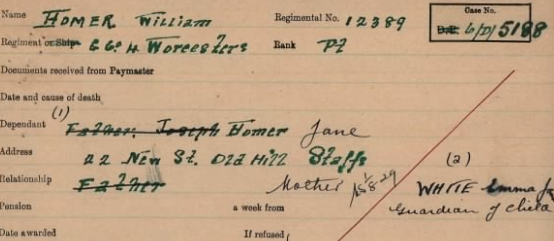 Name HOMER William Regimental No. 12389 Case No.
6/D/ 5188
Regiment or Ship 6 Co. 4 Worcesters Rank Pt
Documents received from Paymaster
Date and cause of death
(1)
Dependant Father: Joseph Homer Jane
Address 22 New St. Old Hill Staffs (2)
Relationship Father Mother WHITE Emma
Guardian of child
Pension a week from
Date awarded If refused